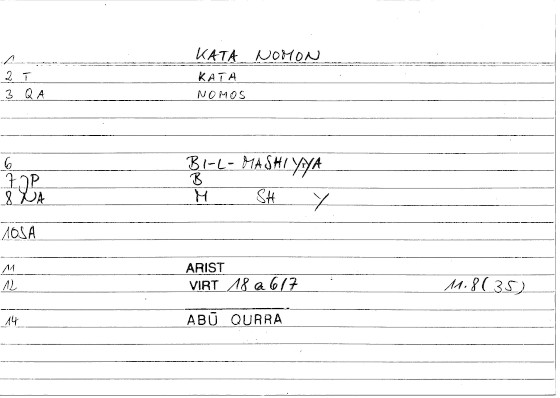 1 KATA NOMON
2 T KATA
3 QA NOMOS
6 BI-L-MASHIYYA
7 JP B
8 NA M SH Y
10 SA
11 ARIST
12 VIRT 18 a 6/7 11.8 (35)
14 ABŪ QURRA